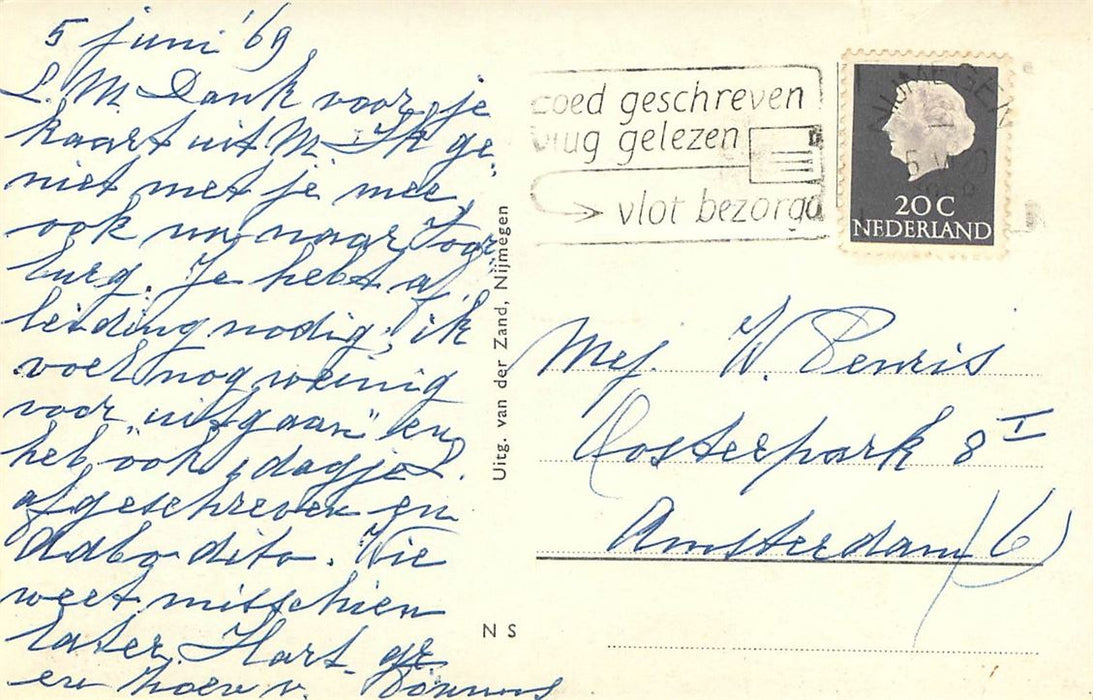 5 juni '69
L. M. Dank voor je
kaart uit M. Ik ge-
niet met je mee,
ook nu naar Voor-
burg. Je hebt af-
leiding nodig, ik
voel nog weinig
voor "uitgaan" en
heb ook dagjes
afgeschreven en
dito. Wie
weet misschien
later. Hart. gr
en zoen v.
Uitg. van der Zand, Nijmegen
N S
goed geschreven
vlug gelezen
vlot bezorgd
NIJMEGEN
20 C
NEDERLAND
Mej. W. Penris
Oosterpark 8 I
Amsterdam (6)